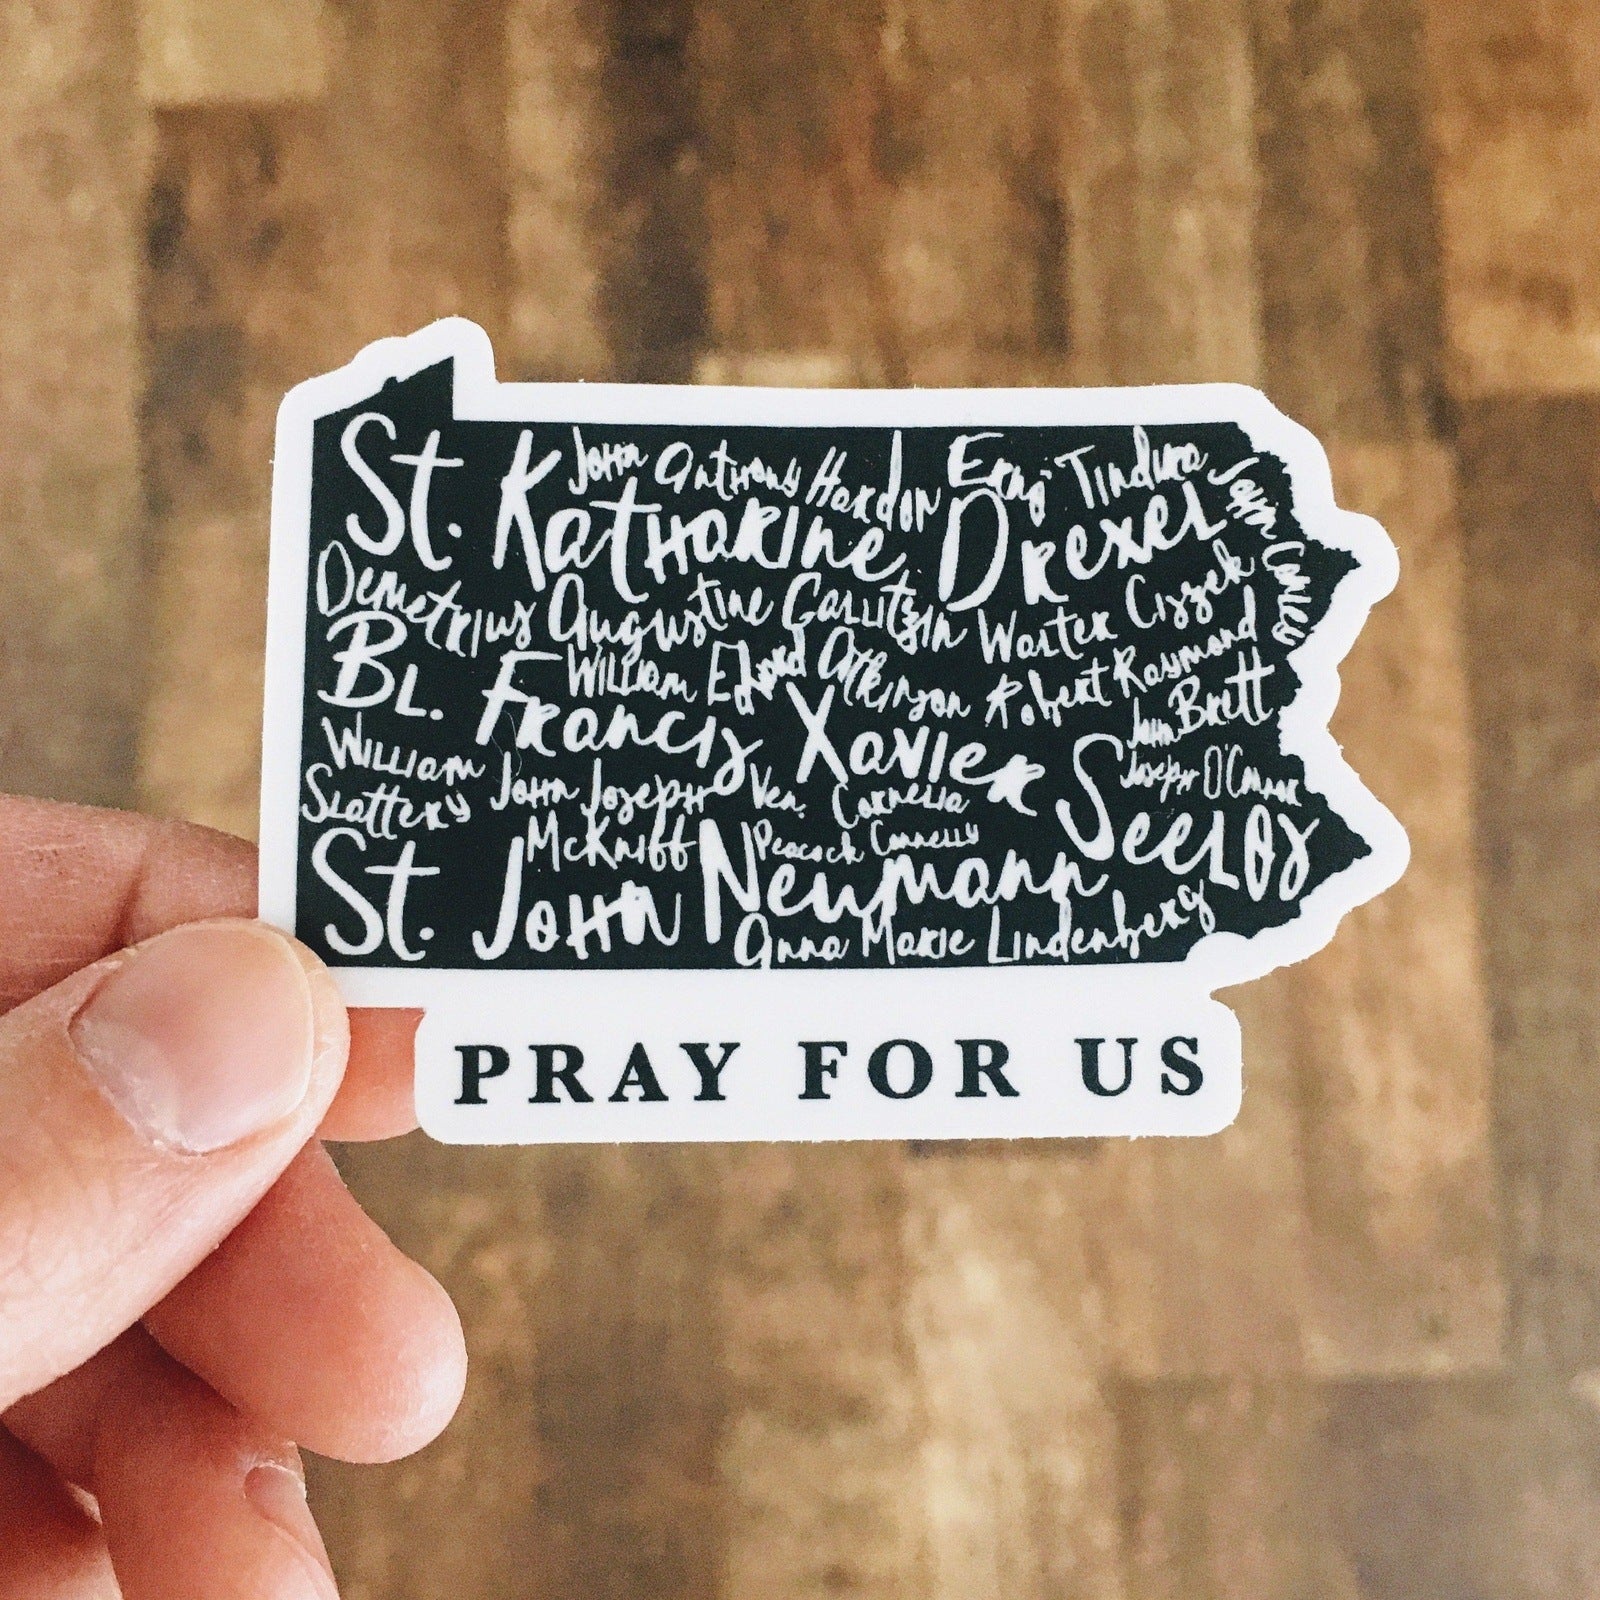 John Anthony Hardon Erno Tindira John Conley
St. Katharine Drexel
Demetrius Augustine Gallitzin Walter Ciszek
William Edward Atkinson Robert Raymond
Bl. Francis Xavier Seelos
John Brett
William Slattery
John Joseph McKniff
Ven. Cornelia
Peacock Connelly
Joseph O'Connor
St. John Neumann
Anna Marie Lindenberg
PRAY FOR US